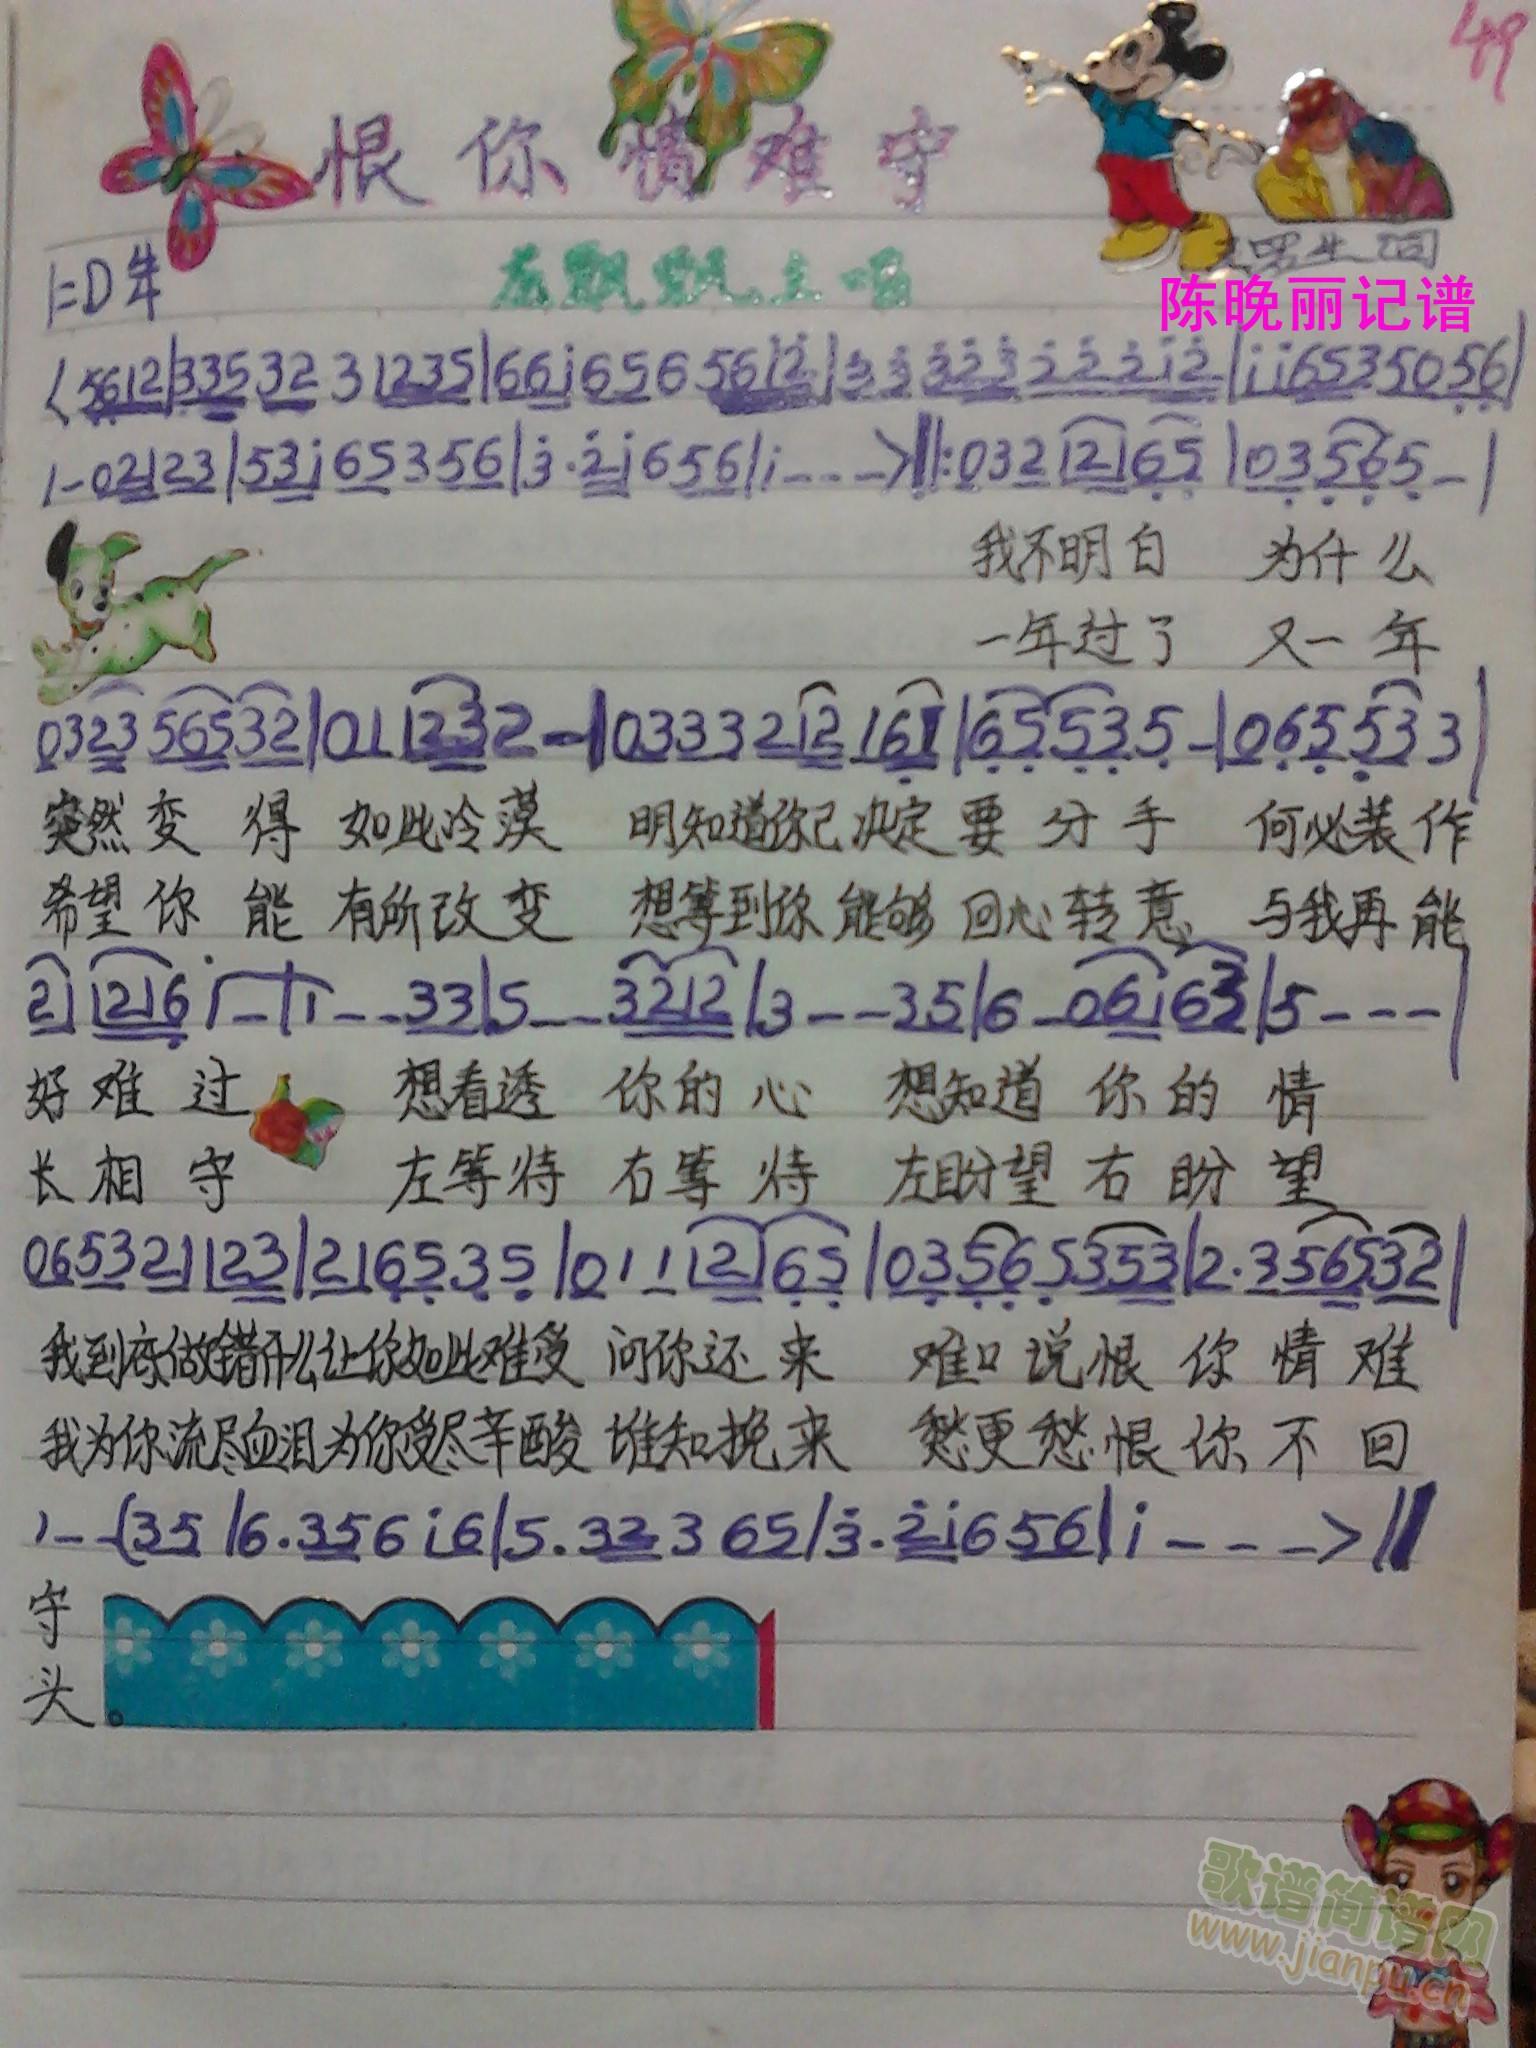 49
恨你情难守
1=D
飘飘主唱
陈晚丽记谱
<5612|33532 3 1235|66i656 5612|33323 22212|ii65350 56|
1-02123|53i65356|3·2i656|i--->‖:032 12165|03565-|
我不明白 为什么
一年过了 又一年
0323 56532|01 1232-|03332 12 161|65535-|065533|
突然变得如此冷漠 明知道你已决定要分手 何必装作
希望你能有所改变 想等到你能够回心转意 与我再能
21 1216 i-|i--33|5--3212|3--35|6-06i63|5---|
好难过 想看透你的心 想知道你的情
长相守 左等待右等待 左盼望右盼望
065321123|216535|011 12165|03565353|2·356532|
我到底做错什么让你如此难受 问你还来 难口说恨你情难
我为你流尽血泪为你受尽辛酸 谁知挽来 愁更愁恨你不回
1--(35|6·356i6|5·32365|3·2i656|i--->‖
守
头。
歌谱简谱网
www.jianpu.cn